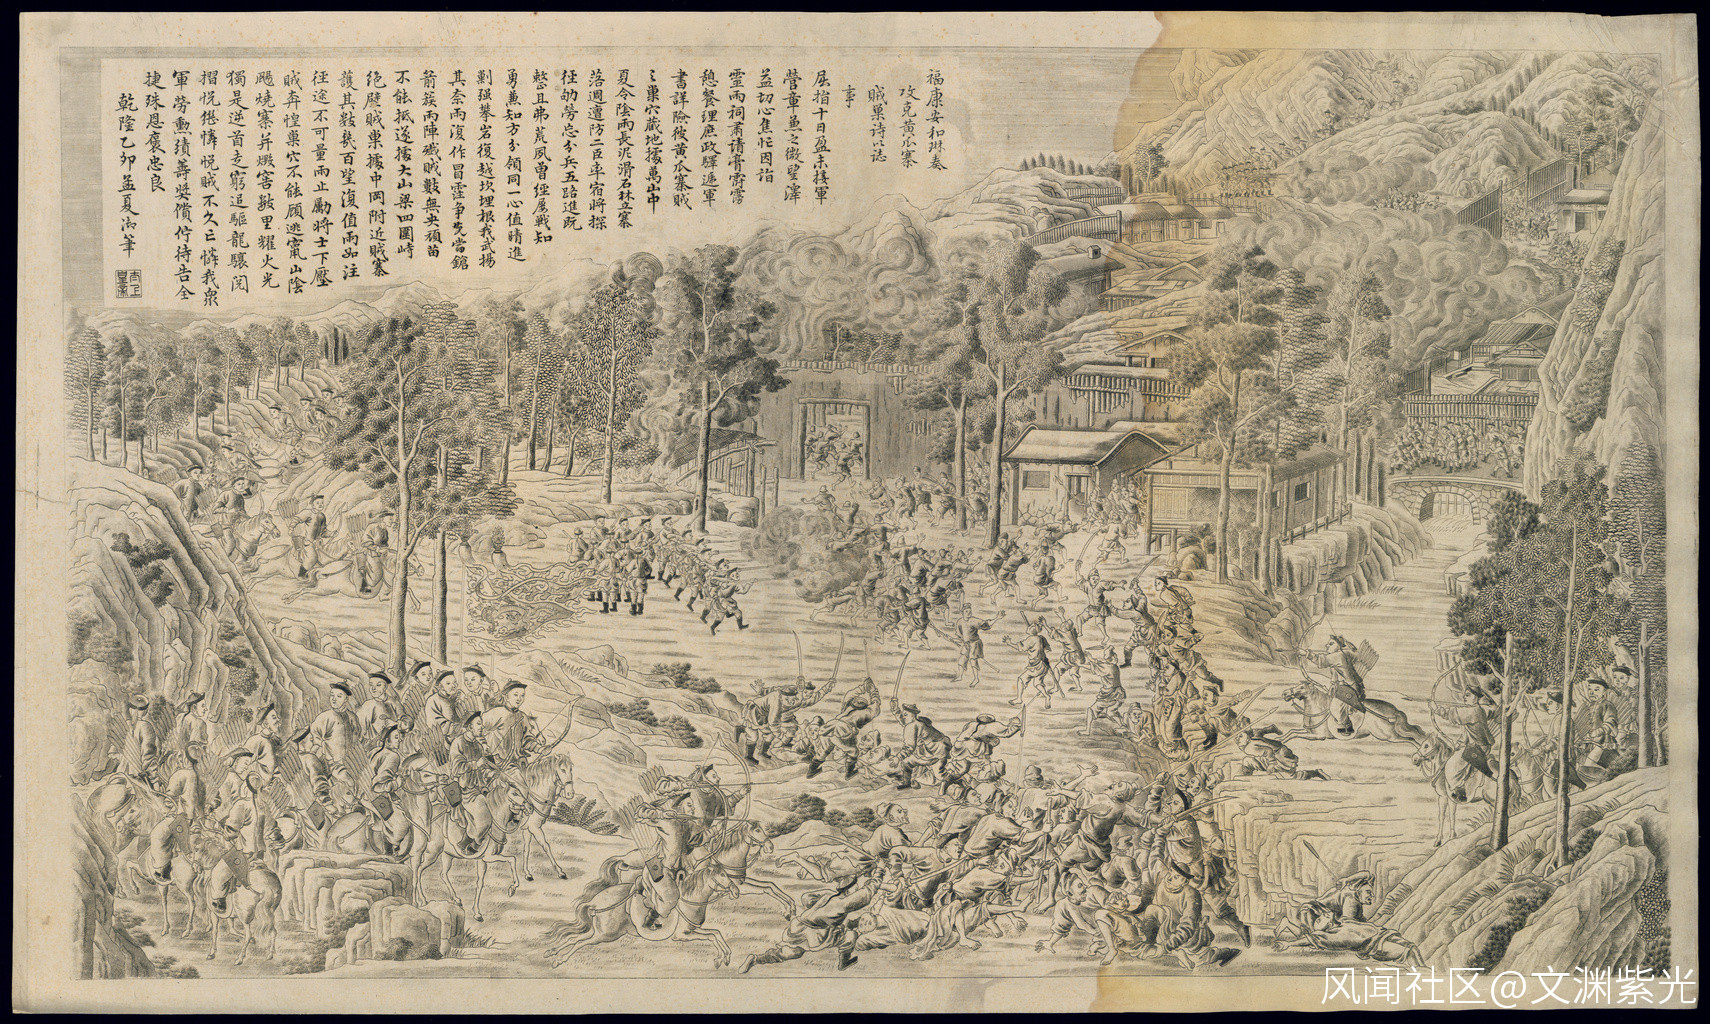 福康安和琳奏
攻克黃瓜寨
賊巢詩以誌
事
屈指十日盈未接軍
營章兼之徵望澤
益切心焦忙因詣
靈雨祠肅請膏霶
憩餐理庶政驛遞軍
書詳險彼黃瓜寨賊
〻巢穴藏地據萬山中
夏令陰雨長泥滑石林立寨
落週遭防二臣率宿將探
徑劬勞忘分兵五路進既
整且弗荒夙曾經屢戰知
勇兼知方分領同一心值晴進
剿强攀岩復越坎埋根我武揚
其奈雨復作冒霆爭先當鎗
箭簇雨陣殲賊數無央頑苗
不能抵遂據大山梁四圍峙
絕壁賊巢據中岡附近賊寨
護其數幾百望復值雨如注
徑途不可量雨止勵將士下壓
賊奔惶巢穴不能顧逃竄山陰
颺燒寨并燬窖數里耀火光
獨是逆首走窮追驅龍驤閱
摺悅繼憐悅賊不久亡憐我眾
軍勞勳績籌奬償佇待告全
捷殊恩褒忠良
乾隆乙卯孟夏御筆
太上皇帝
风闻社区@文渊紫光